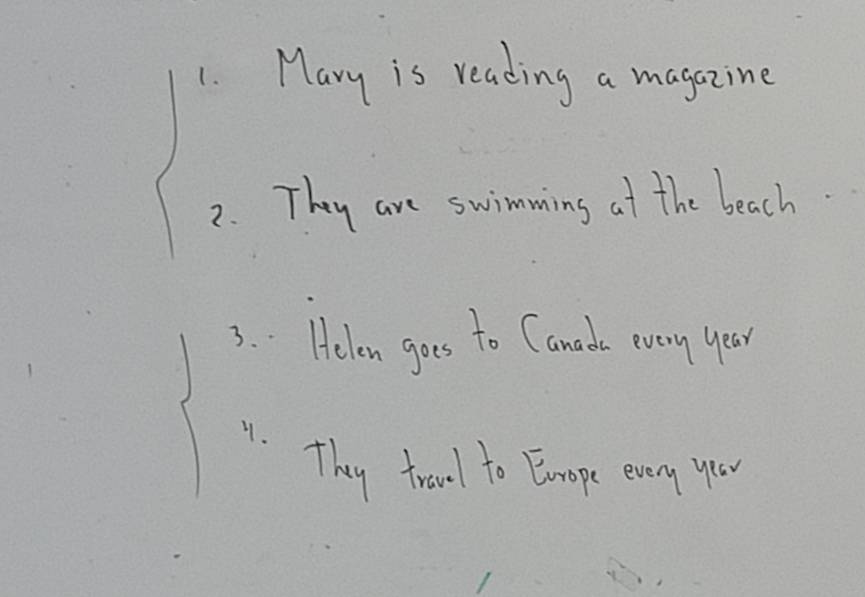 1. Mary is reading a magazine
2. They are swimming at the beach.
3. Helen goes to Canada every year
4. They travel to Europe every year